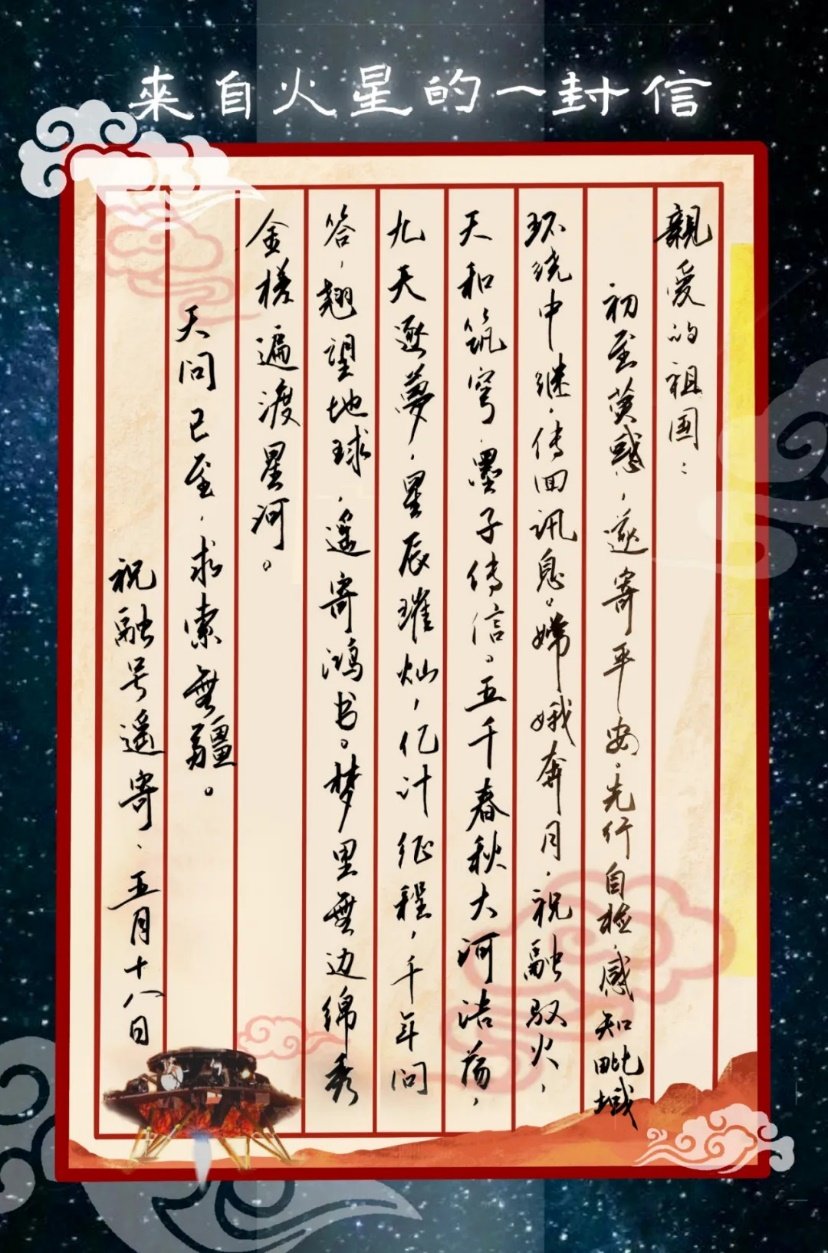 来自火星的一封信
親爱的祖国：
初至荧惑，遥寄平安。先行自检，感知毗域
环绕中继，传回讯息。嫦娥奔月，祝融驭火，
天和筑穹，墨子传信。五千春秋大河浩荡，
九天逐夢，星辰璀灿，亿计征程，千年问
答，翘望地球，遥寄鸿书。梦里無边绵秀
金槎遍渡星河。
天问已至，求索無疆。
祝融号遥寄、五月十八日